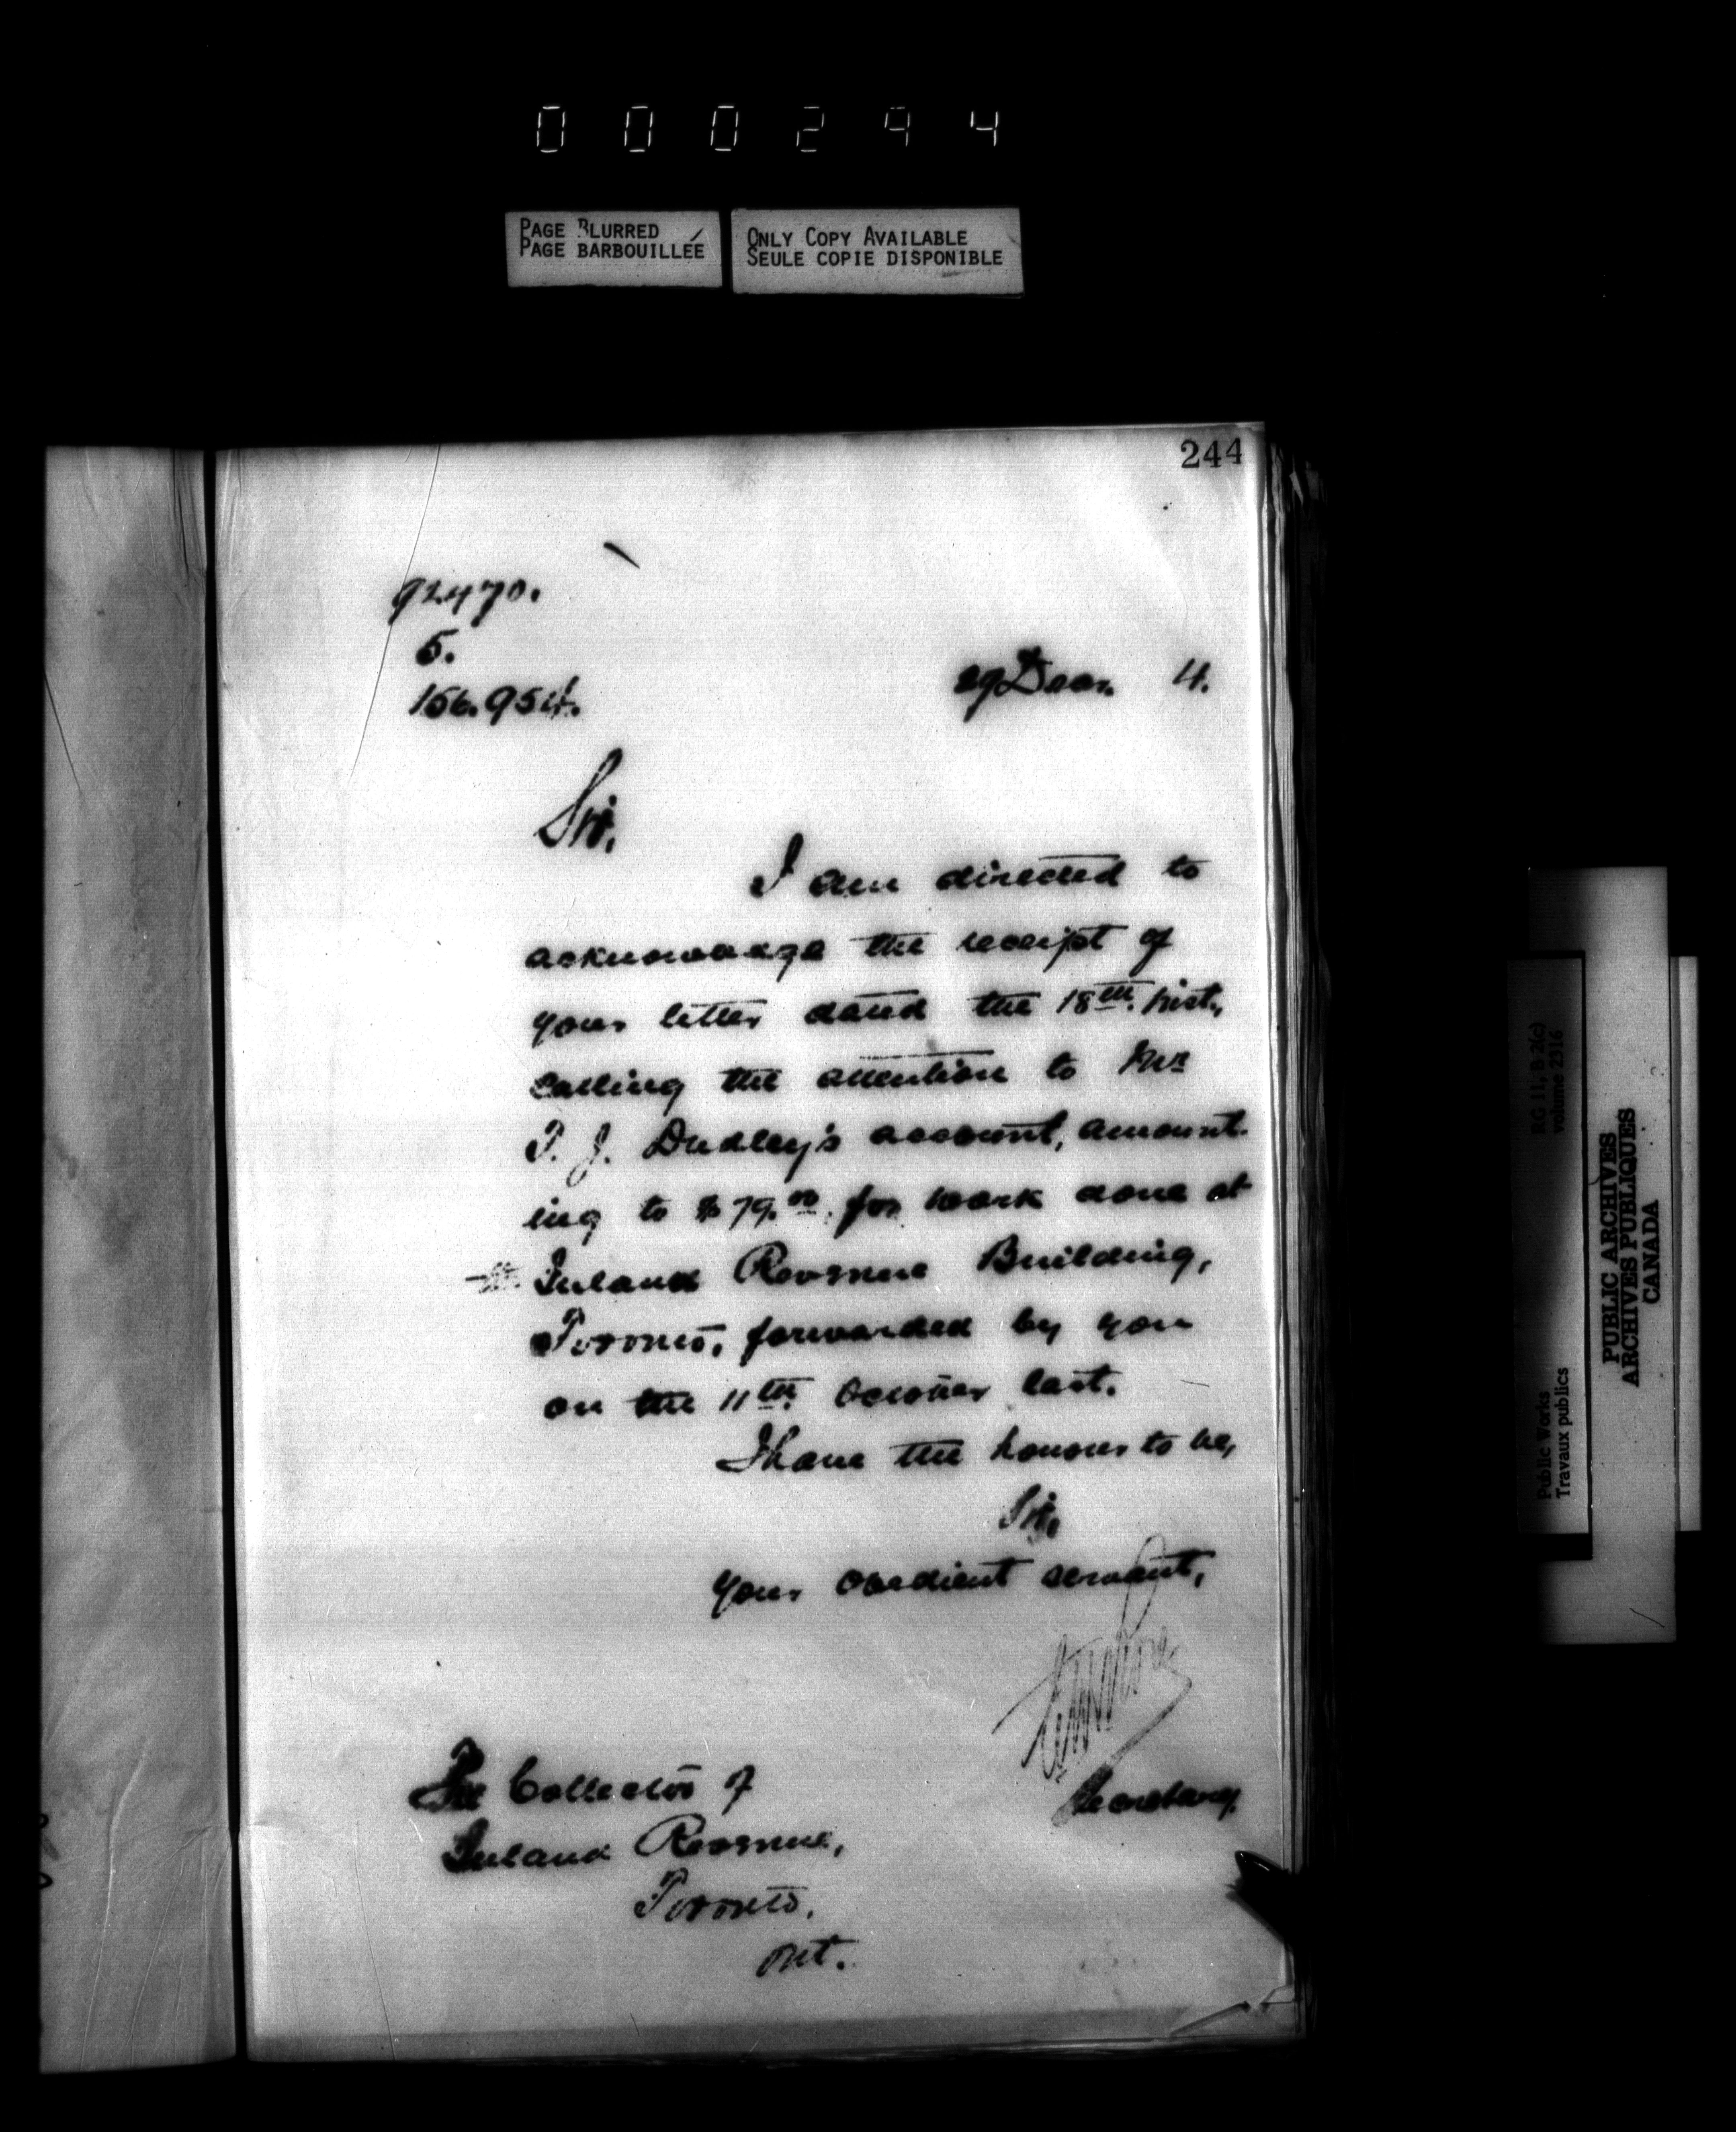 000294
PAGE BLURRED
PAGE BARBOUILLÉE
ONLY COPY AVAILABLE
SEULE COPIE DISPONIBLE
244
92470.
5.
156.954.
29 Decr. 4.
Sir,
I am directed to
acknowledge the receipt of
your letter dated the 18th. inst.,
calling the attention to Mr
P. J. Dudley's account, amount-
ing to $79.00, for work done at
the Inland Revenue Building,
Toronto, forwarded by you
on the 11th. October last.
I have the honour to be,
Sir,
Your obedient servant,
Secretary.
The Collector of
Inland Revenue,
Toronto,
Ont.
RG 11, B 2(c)
volume 2316
Public Works
Travaux publics
PUBLIC ARCHIVES
ARCHIVES PUBLIQUES
CANADA